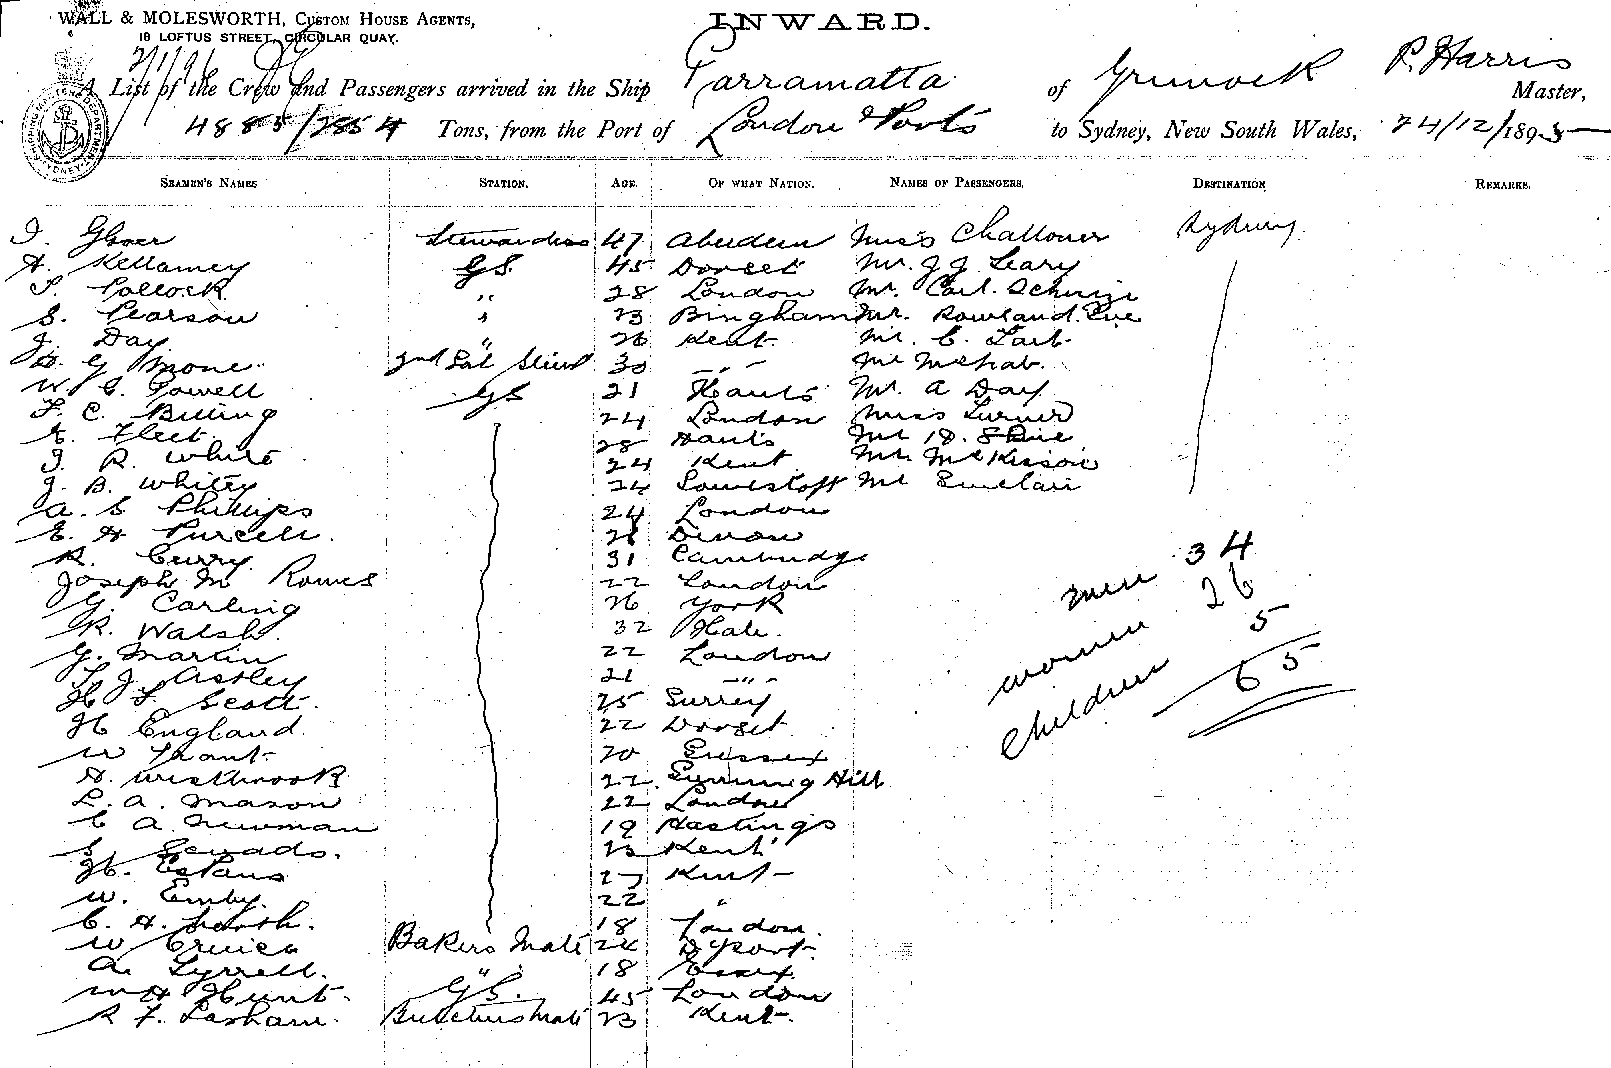 WALL & MOLESWORTH, CUSTOM HOUSE AGENTS,
18 LOFTUS STREET, CIRCULAR QUAY.
INWARD.
A List of the Crew and Passengers arrived in the Ship Parramatta of Greenock P. Harris Master,
4885/2854 Tons, from the Port of London & Ports to Sydney, New South Wales, 24/12/1895
SEAMEN'S NAMES STATION. AGE. OF WHAT NATION. NAMES OF PASSENGERS. DESTINATION REMARKS.
I. Glover Stewardess 47 Aberdeen Miss Challoner Sydney
A. Kellamey GS. 45 Dorset Mr. J J Leary
S. Pollock " 28 London Mr. Carl.
S. Pearson " 23 Bingham Mr. Rowland
J. Day " 26 Kent. Mr. C.
G 2nd Sal 30 " Mr
W. C. Powell GS 21 Hants Mr. A Day
F. C. Billing 24 London Miss Turner
E. Fleet. 28 Hants Mr
J. R. White 24 Kent
J. B. Whitey 24 Lowestoft Mr Sinclair
A. S Phillips 24 London
E. H Purcell. Devon
R. Curry 31 Cambridge
Joseph M 22 London
G. Carling 26 York
R. Walsh. 32
G. Martin 22 London
T. J. Astley 21 "
H F Scott. 25 Surrey
H England. 22 Dorset
W 20 Sussex
A. Westbrook 22. Hill
L. A. Mason 22 London
C A Newman 19 Hastings
S Kent
H. 27 Kent
W. Emby. 22 "
C. H. 18 London.
W Bakers Mate 24
A. Tyrrell. " 18 Essex
W H Hunt. GS. 45 London
R F. Lasham. Butchers Mate 23 Kent.
men 34
women 26
Children 5
65